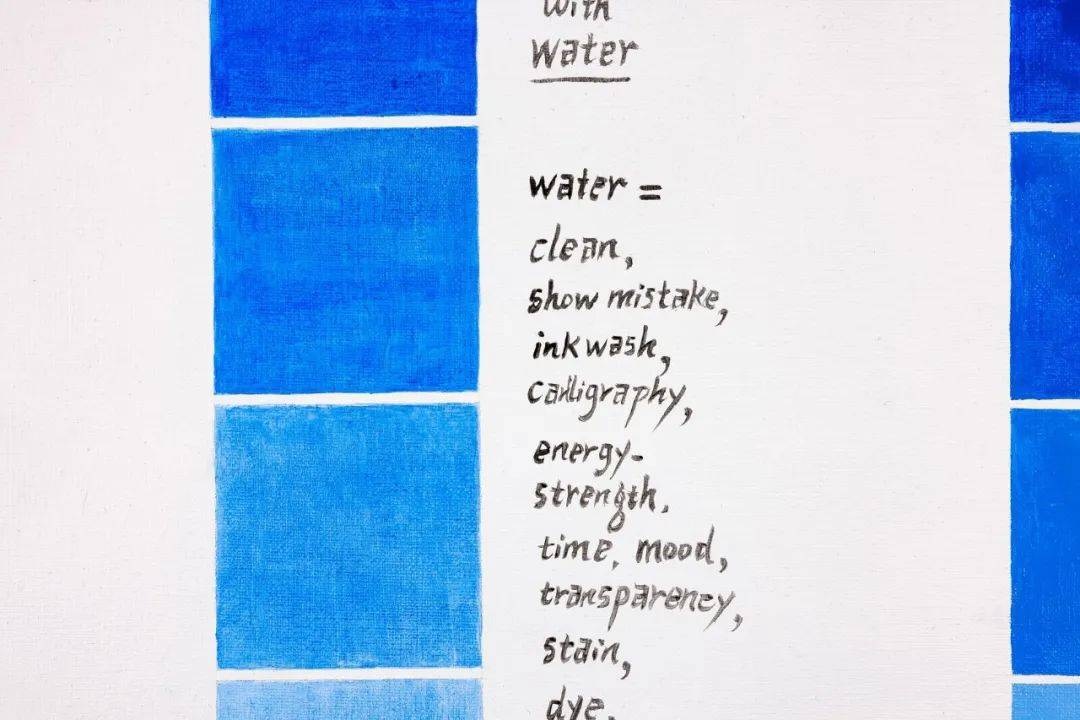 with
Water
water =
clean,
show mistake,
ink wash,
calligraphy,
energy-
strength,
time, mood,
transparency,
stain,
dye,